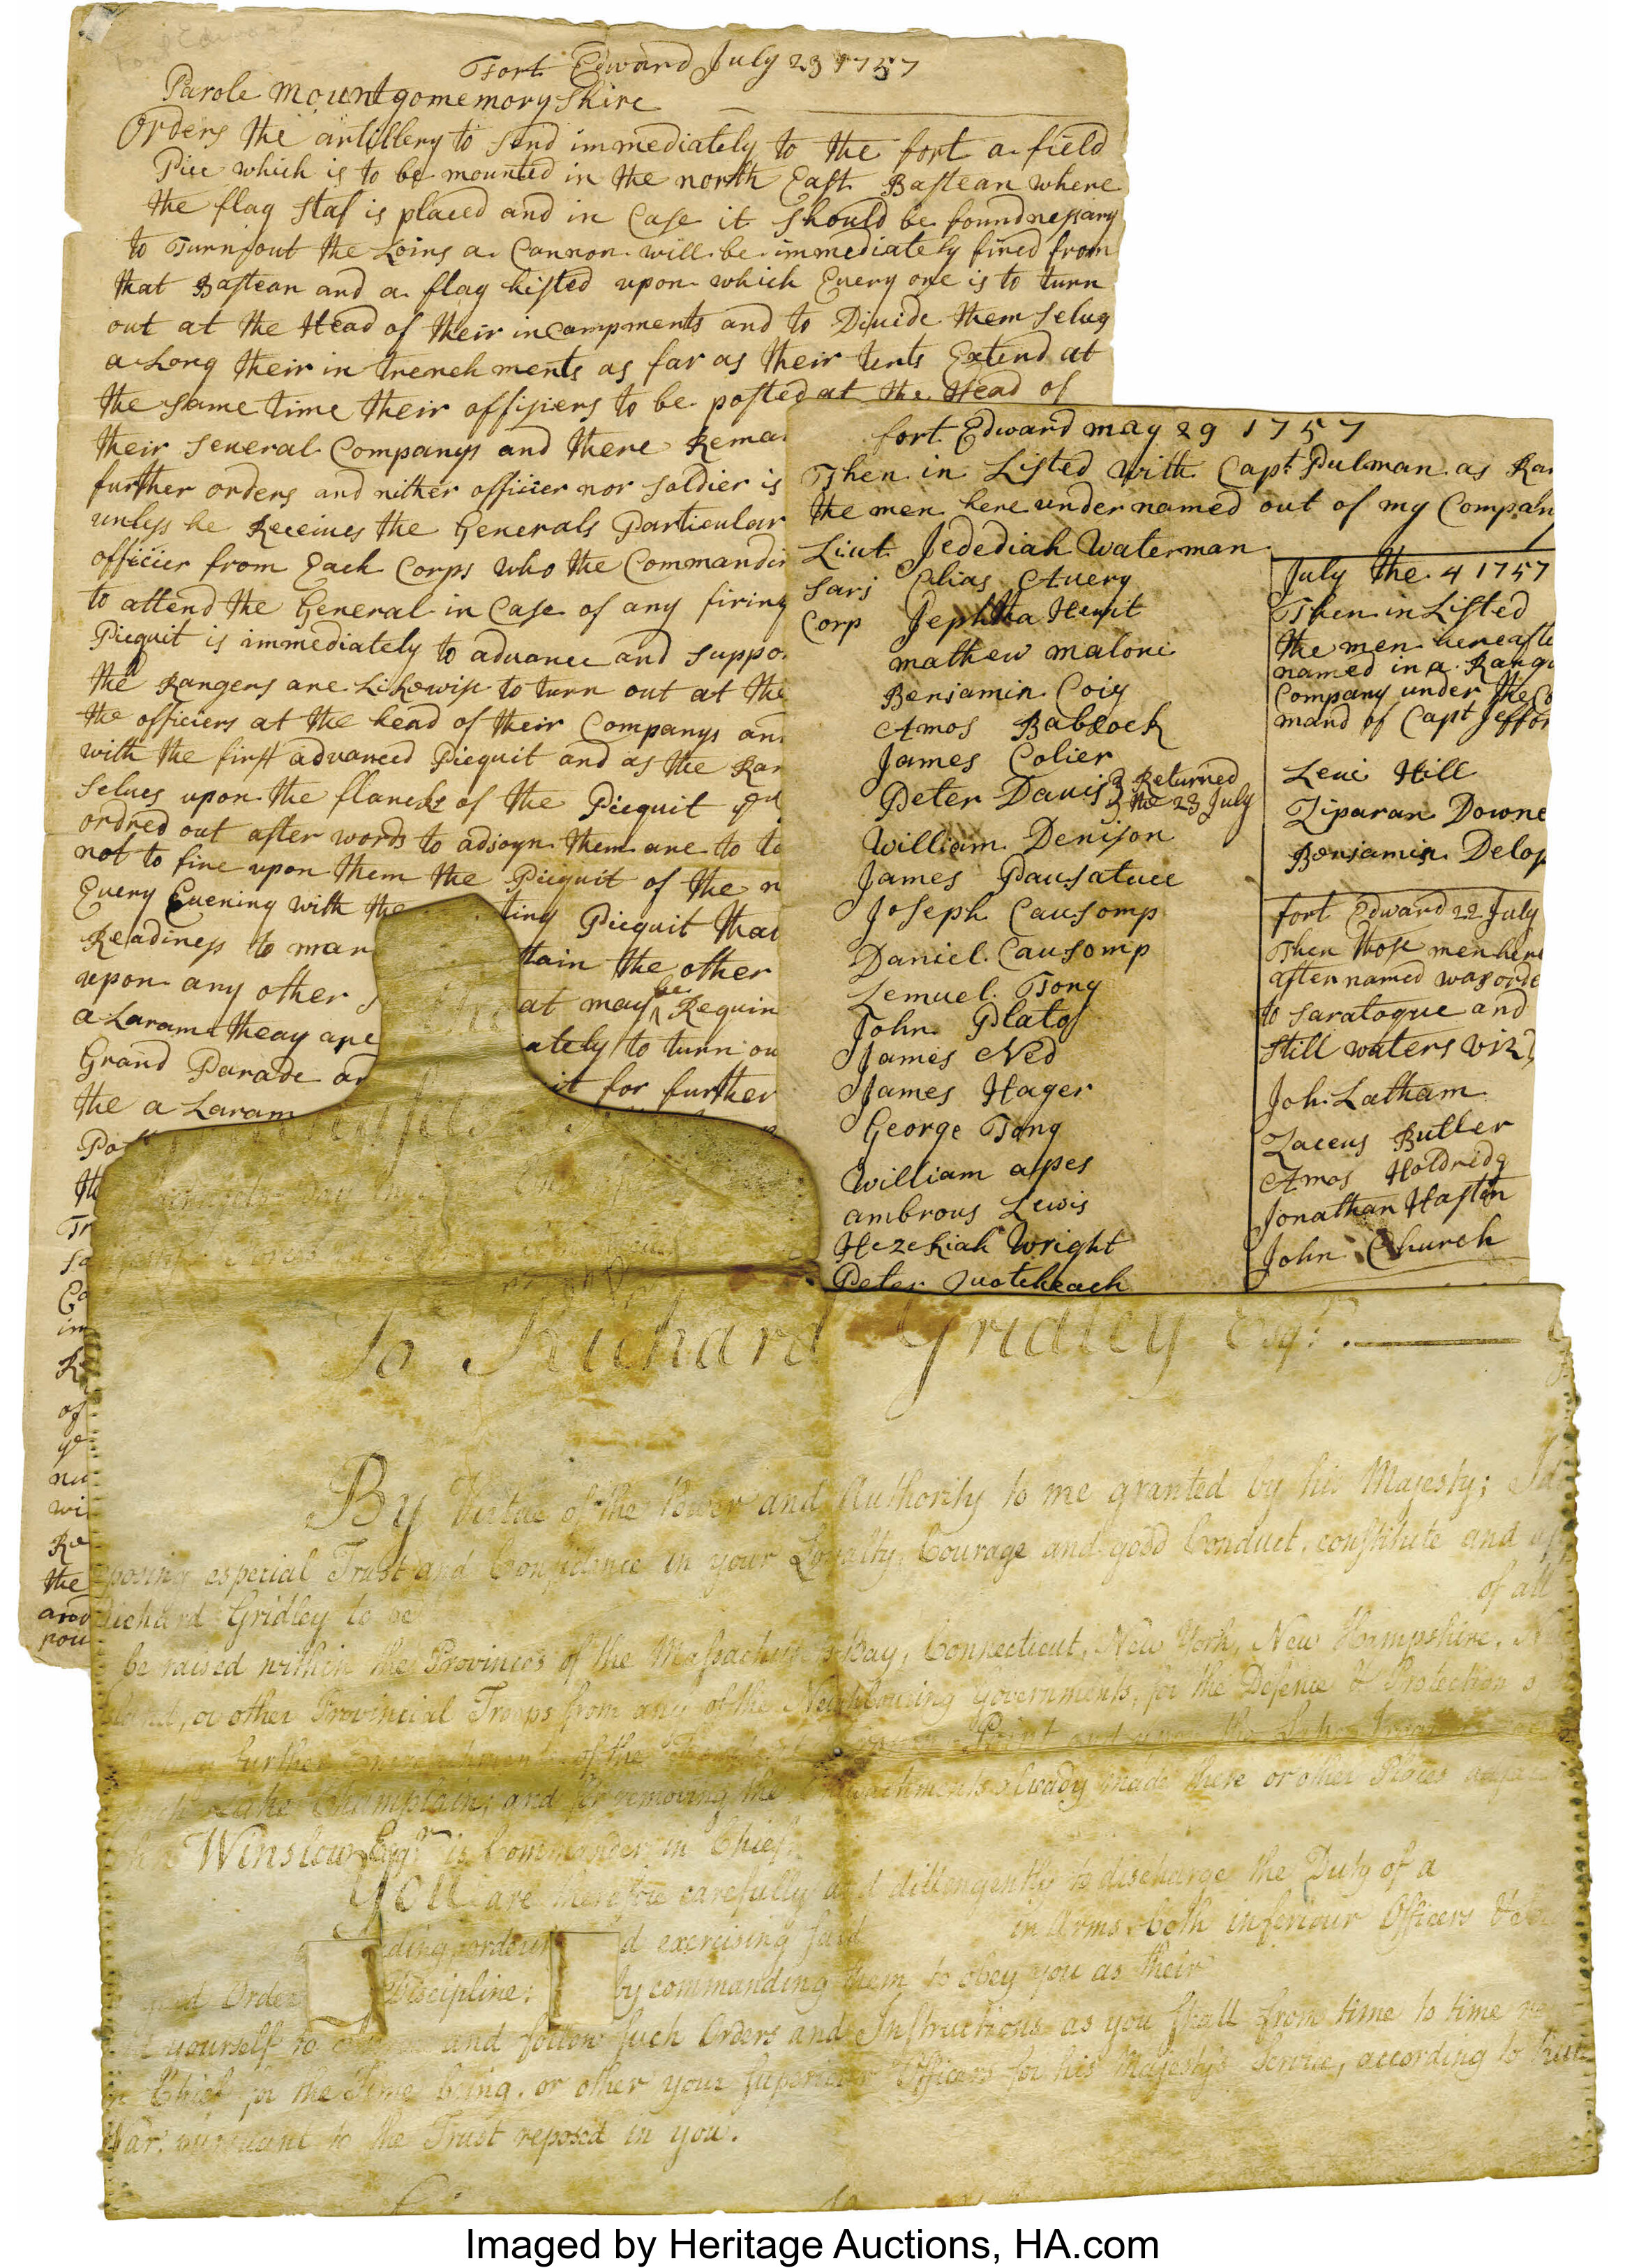 Fort Edward July 23 1757
Parole Mountgomemoryshire
Orders the artillery to send immediately to the fort a field
Pice which is to be mounted in the north East Bastean where
the flag staf is placed and in Case it should be found nessary
to Turn out the Loins a Cannon will be immediately fired from
that Bastean and a flag histed upon which Every one is to turn
out at the Head of their incampments and to Divide them selvs
a Long their in trenchments as far as their tents Extend at
the same time their offisiers to be posted at the Head of
their several Companys and there Remai
further orders and nither officier nor soldier is
unless he Receives the Generals Particular
officier from Each Corps who the Commandin
to attend the General in Case of any firing
Picquit is immediately to advance and suppo
the Rangers are Likewise to turn out at the
the officiers at the head of their Companys an
with the first advanced Picquit and as the Ran
selves upon the flancks of the Picquit
ordred out after words to adjoyn them are to ta
not to fire upon them the Picquit of the n
Every Evening with the ting Picquit that
Readiness to mar tain the other
upon any other at may be Requir
a Laram theay are ately to turn ou
Grand Parade an it for further
the a Laram
fort Edward may 29 1757
Then in Listed with Capt Pulman as Ran
the men here under named out of my Company
Liut Jedediah Waterman
Sarj Elias Avery
Corp Jephtha Hewit
mathew maloni
Benjamin Coig
Amos Babcock
James Colier
Peter Davis Returned the 23 July
William Denison
James Pausatuce
Joseph Causomp
Daniel Causomp
Lemuel Tong
John Plato
James Ned
James Hager
George Tong
William apes
ambrous Lewis
Hezekiah Wright
Peter Quotcheach
July the 4 1757
Then in Listed
the men hereafte
named in a Range
Company under the Co
mand of Capt Jeffor
Levi Hill
Ziparan Downe
Benjamin Delop
fort Edward 22 July
Then those men here
after named was orde
to Saratogue and
Still waters viz
Joh Latham
Zaceus Butler
Amos Holdridg
Jonathan Hasten
John Church
To Richard Gridley Esqr.
By Virtue of the Power and Authority to me granted by his Majesty; I d
posing especial Trust and Confidence in your Loyalty, Courage and good Conduct, constitute and ap
Richard Gridley to be of all
be raised within the Provinces of the Massachusetts Bay, Connecticut, New York, New Hampshire,
land, or other Provincial Troops from any of the Neighbouring Governments, for the Defence & Protection
further of the Point and upon the Lake
Lake Champlain, and for removing the Encroachments already made there or other Places
Winslow Esqr. is Commander in Chief.
You are therefore carefully and dillengently to discharge the Duty of a
exercising said in Arms both inferiour Officers &
good Order Discipline; by commanding them to obey you as their
yourself to and follow such Orders and Instructions as you shall from time to time
Chief for the Time being, or other your superior Officers for his Majesty's Service, according to
War, pursuant to the Trust reposed in you.
Imaged by Heritage Auctions, HA.com